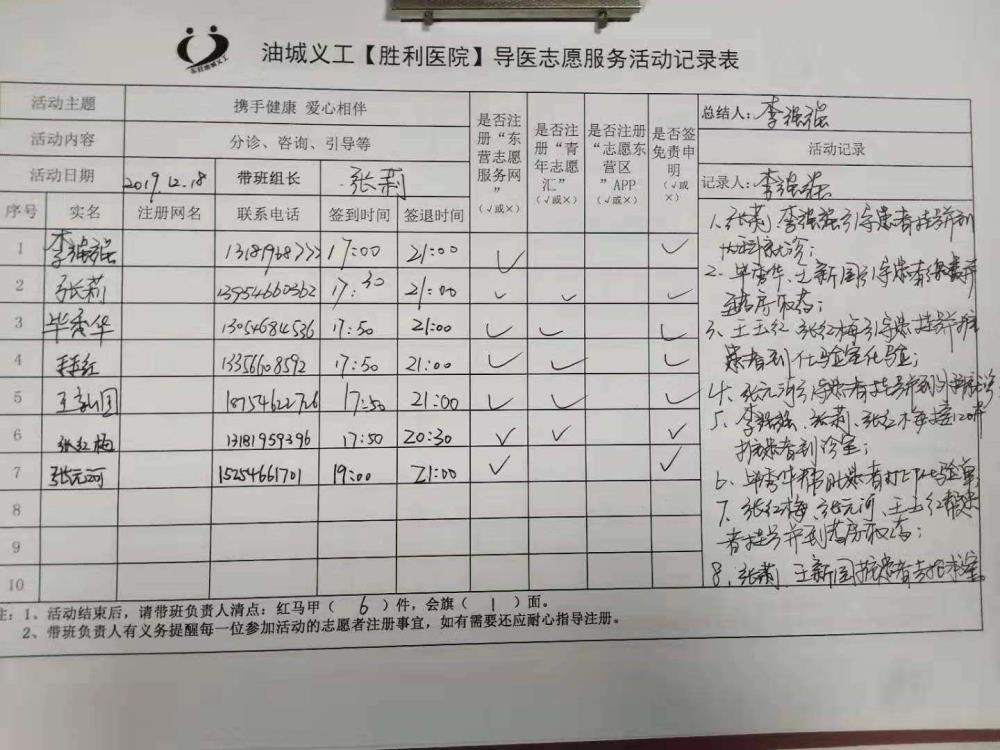 东营油城义工
油城义工【胜利医院】导医志愿服务活动记录表
活动主题 携手健康 爱心相伴
活动内容 分诊、咨询、引导等
活动日期 2019.12.18 带班组长 张莉
序号 实名 注册网名 联系电话 签到时间 签退时间
是否注册“东营志愿服务网”（√或×）
是否注册“青年志愿汇”（√或×）
是否注册“志愿东营区”APP（√或×）
是否签免责申明（√或×）
1 李强强 17:00 21:00 ✓ ✓
2 张莉 13954660362 17:30 21:00 ✓ ✓ ✓
3 毕秀华 13054684536 17:50 21:00 ✓ ✓ ✓
4 13356608592 17:50 21:00 ✓ ✓ ✓
5 王新国 17:50 21:00 ✓ ✓ ✓
6 张红梅 13181959396 17:50 20:30 ✓ ✓ ✓
7 张元河 15254661701 19:00 21:00 ✓ ✓
8
9
10
总结人：李强强
活动记录
记录人：李强强
1、张莉、李强强引导患者挂号并到
就诊；
2、毕秀华、王新国引导患者缴费并
药房取药；
3、王玉红 张红梅引导患者挂号并
患者到化验室化验；
4、张元河引导患者挂号并到
5、李强强、张莉、张红梅接120并
护患者到诊室；
6、毕秀华帮助患者打印化验单；
7、张红梅、张元河、王玉红帮患
者挂号并到药房取药；
8、张莉、王新国
注：1、活动结束后，请带班负责人清点：红马甲（ 6 ）件，会旗（ 1 ）面。
2、带班负责人有义务提醒每一位参加活动的志愿者注册事宜，如有需要还应耐心指导注册。